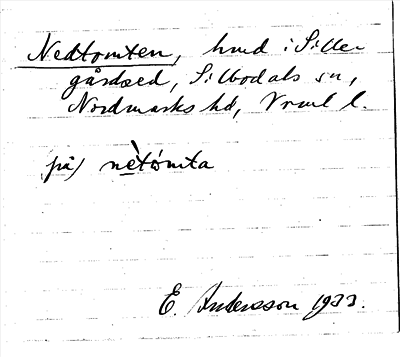 Nedtomten, hmd i Siller
gårdsed, Silbodals sn,
Nordmarks hd, Vrml l.
på) nètómta
E. Andersson 1933.